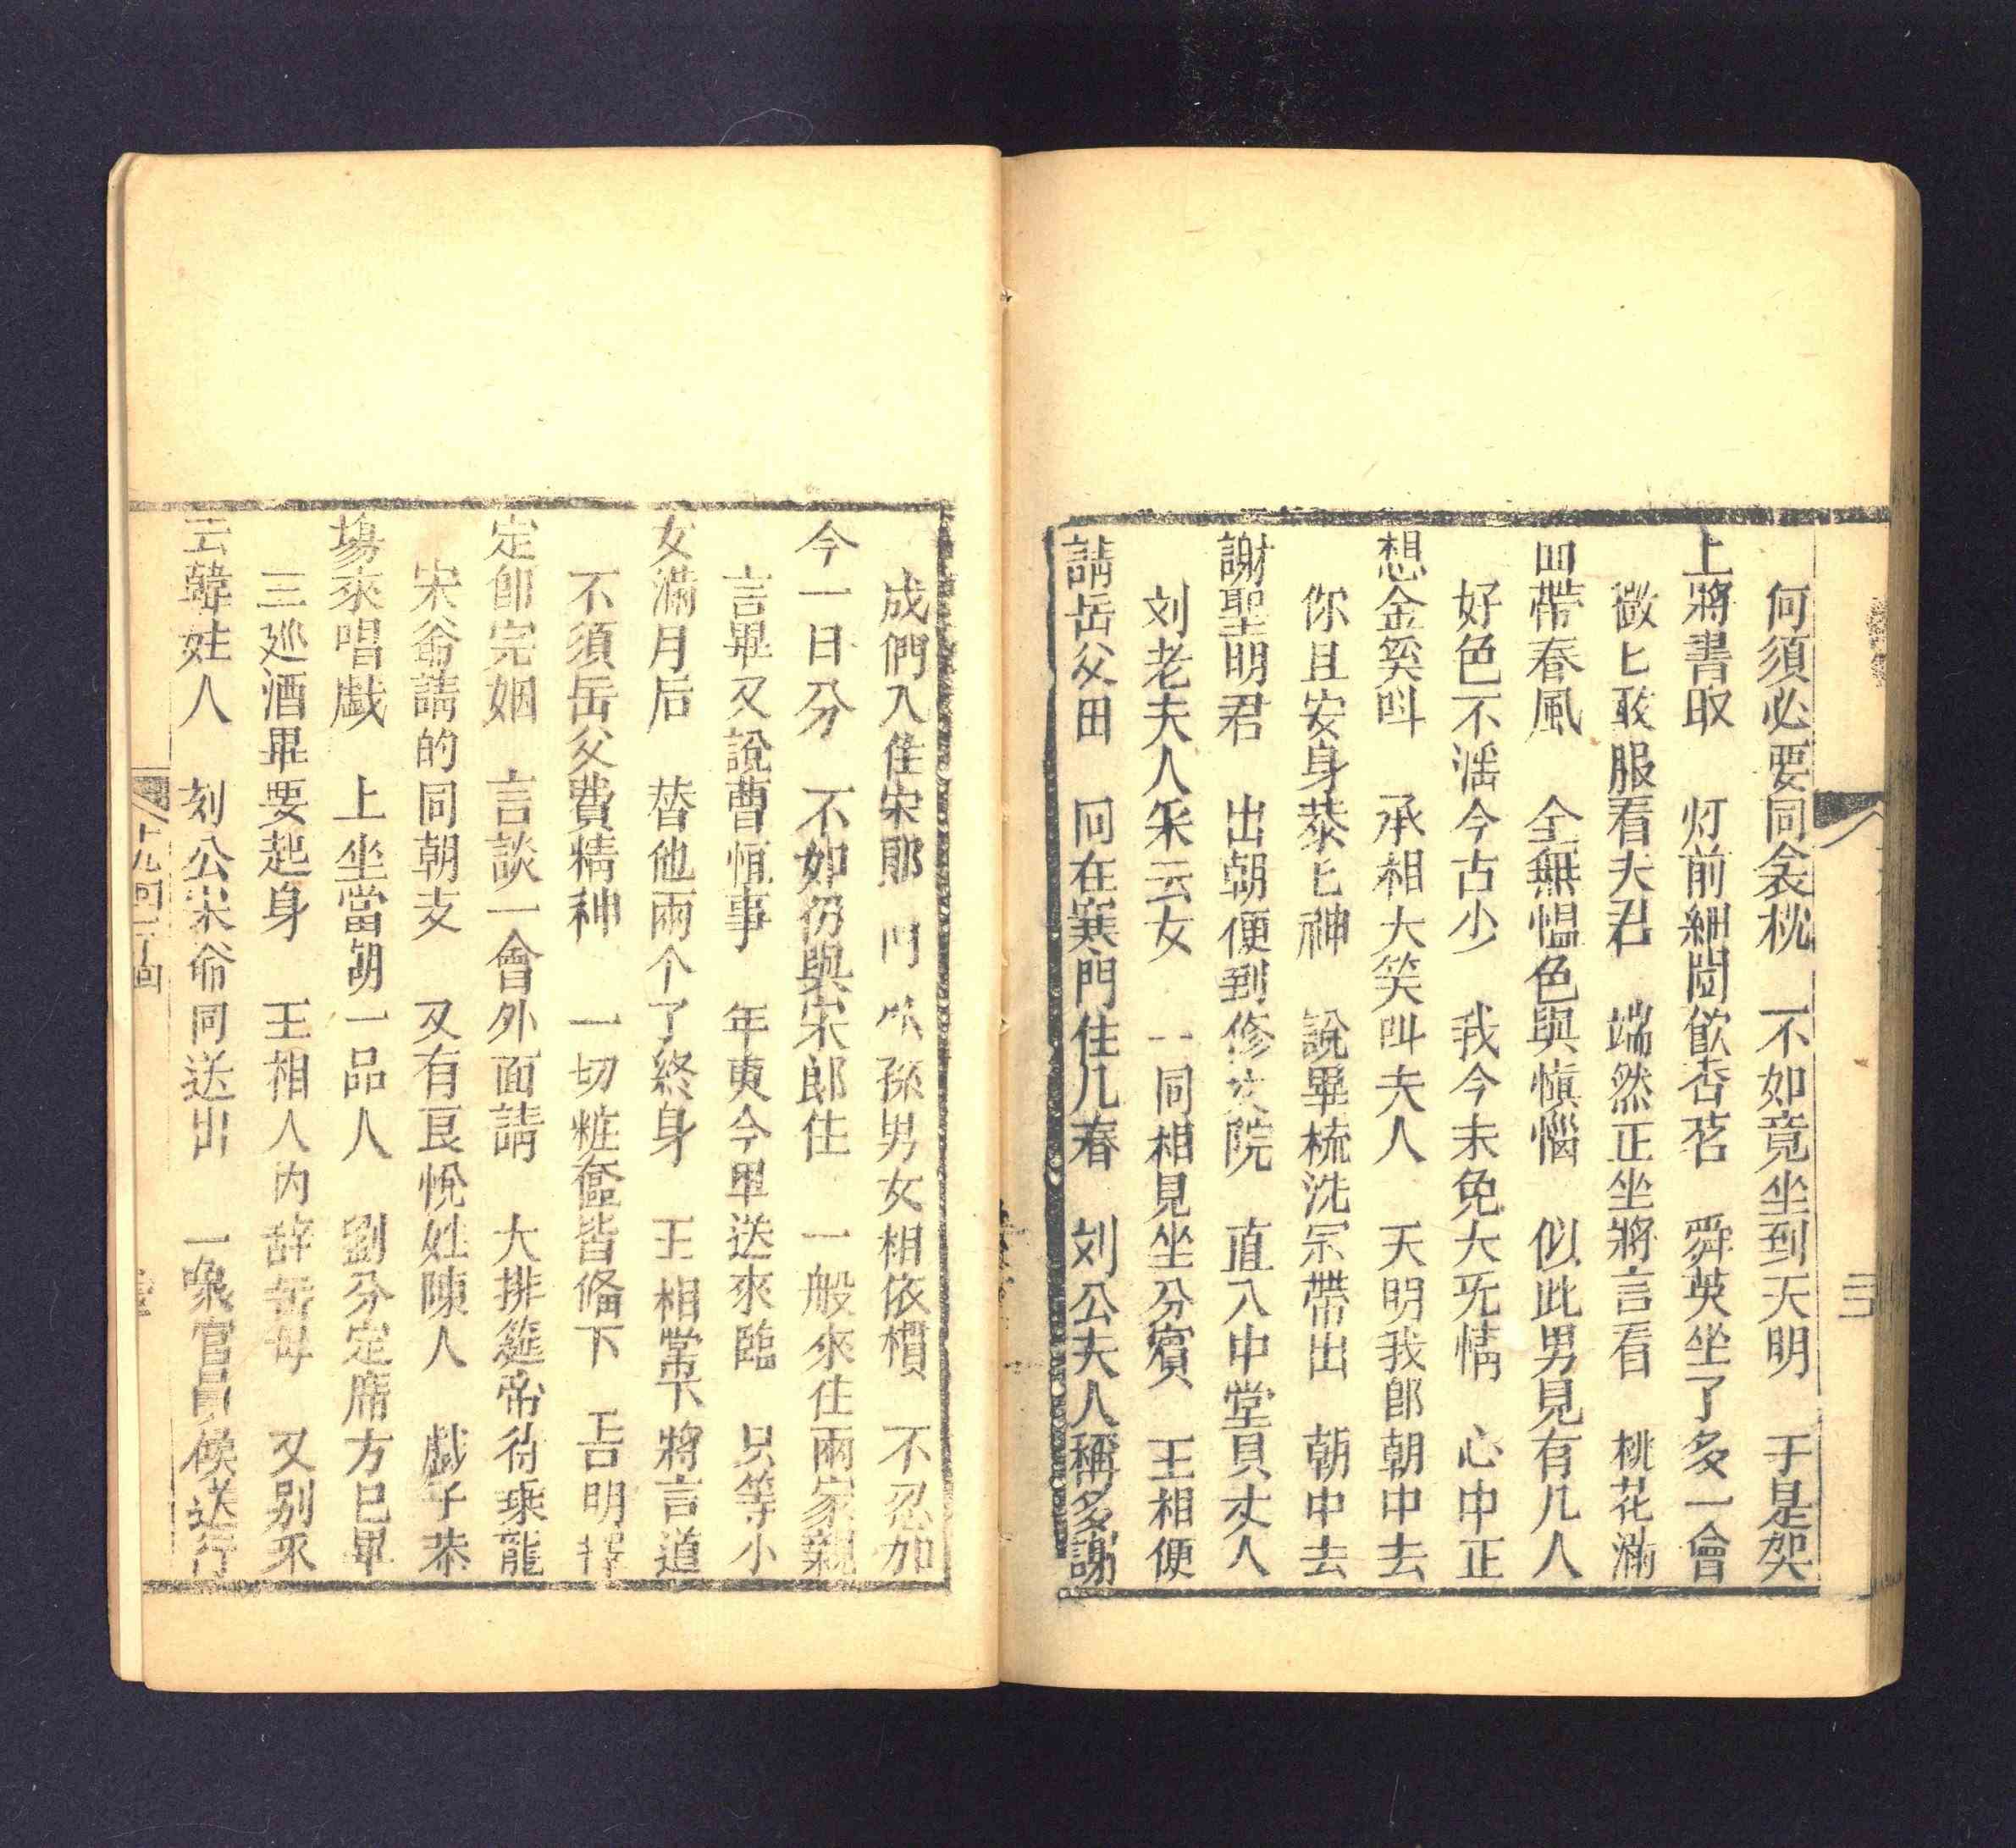 何須必要同衾枕　不如竟坐到天明　于是架
上將書取　灯前細閱飲杏茗　舜英坐了多一會
微匕敢服看夫君　端然正坐將言看　桃花滿
面帶春風　全無愠色與慎惱　似此男見有几人
好色不滛今古少　我今未免大旡情　心中正
想金奚呌　承相大笑呌夫人　天明我郎朝中去
你且安身恭匕神　說畢梳洗冠帶出　朝中去
謝聖明君　出朝便到修文院　直入中堂見丈人
刘老夫人釆云女　一同相見坐分賓　王相便
請岳父田　问在寒門住几春　刘公夫人稱多謝
成們入住宋郎门　孫男女相依櫃　不忍加
今一日分　不如仍與宋郎住　一般來住兩家親
言畢又說曹恒事　年庚今畢送來臨　只等小
女滿月后　替他兩个了終身　王相當下將言道
不須岳父費精神　一切粧奩皆俻下　吉明擇
定郎完姻　言談一會外面請　大排筵席待乘龍
宋爺請的同朝友　又有良悅姓陳人　戯子恭
塲來唱戯　上坐當朝一品人　劉分定席方已畢
三廵酒畢要起身　王相人内辞岳母　又别釆
云韓姓人　刘公宋爺同送出　一衆官員候送行
十九回二十回